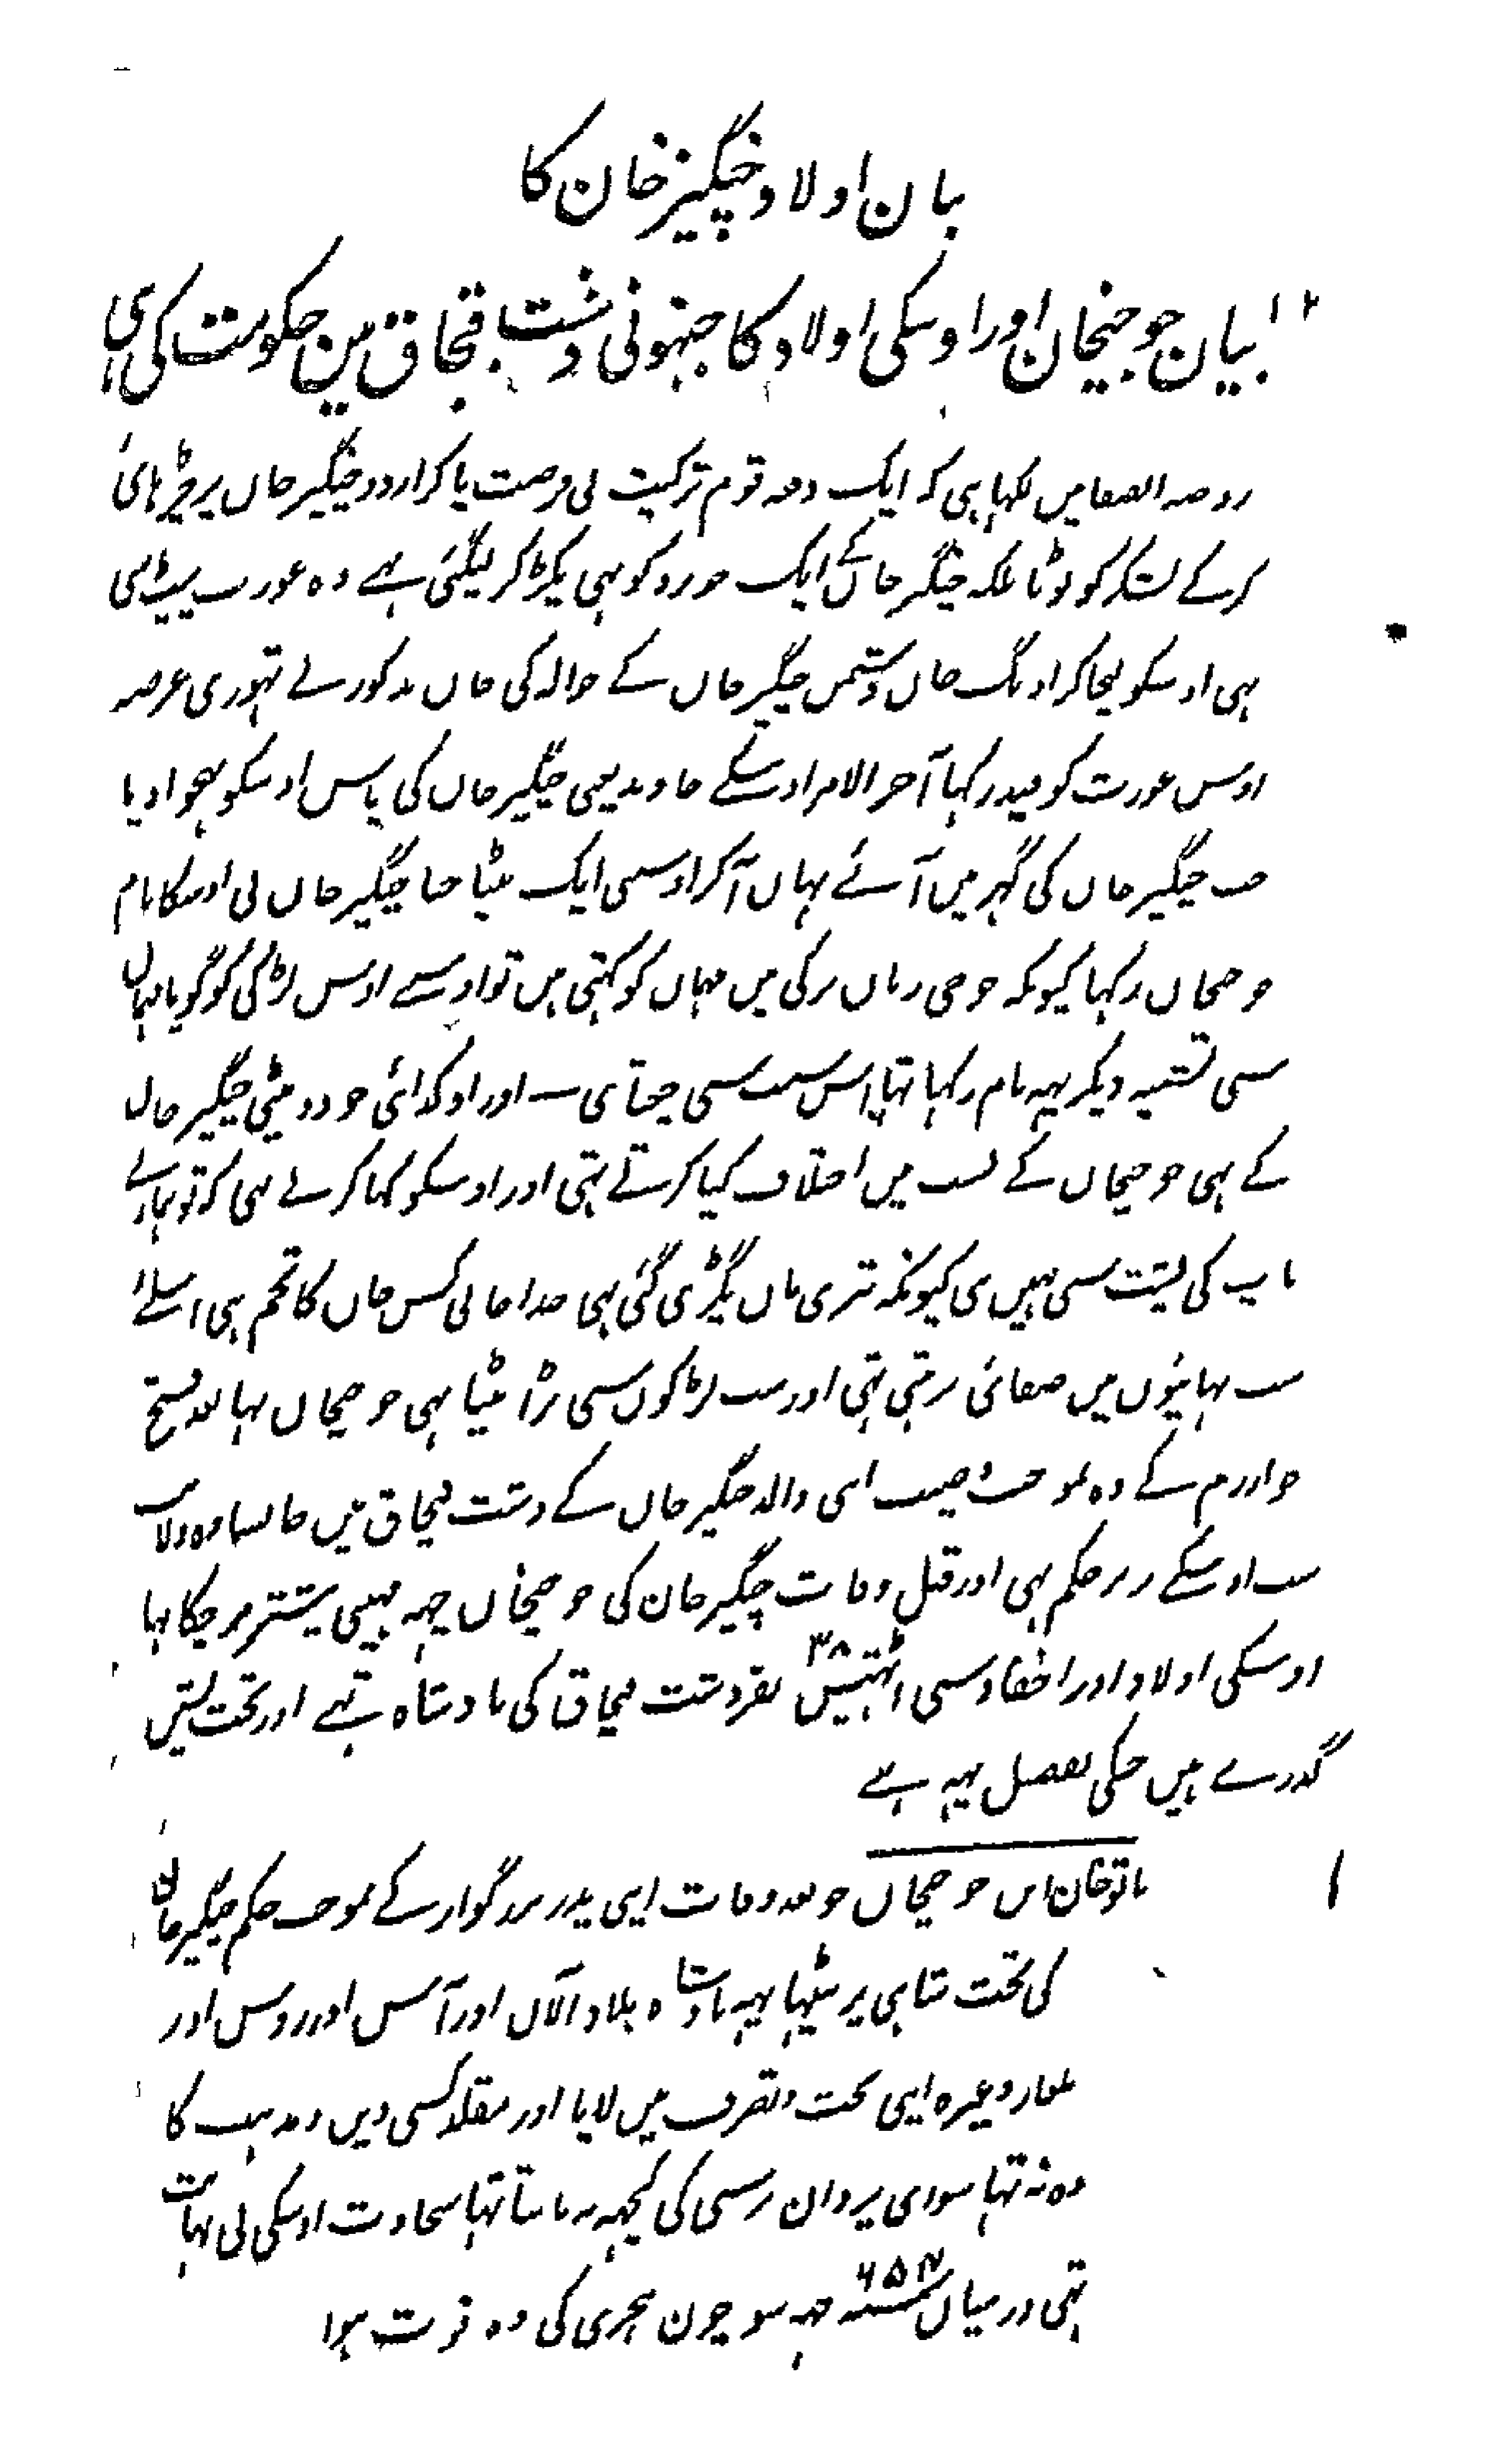 بیان اولاد چنگیز خان کا
۱۲ بیان جوجیخان اور اوسکی اولاد کا جنہونی دشت قبچاق مین حکومت کی ہی
روضہ الصفا میں لکہا ہی کہ ایک دفعہ قوم ترکیت نی فرصت پا کر اردو چنگیز خاں پر چڑہائی
کر کے لشکر کو لوٹا بلکہ چنگیز خاں کے ایک جورو کو بہی پکڑ کر لیگئی ہے وہ عورت پیٹ سی
ہی اوسکو لیجا کر اونگ خاں دشمن چنگیز خاں کے حوالہ کی خاں مذکور نے تہوری عرصہ
اوس عورت کو قید رکہا آخر الامر اوسکے خاوند یعنی چنگیز خاں کی پاس اوسکو بہجوا دیا
جب چنگیز خاں کی گہر میں آئے یہاں آکر اوسی ایک بیٹا جنا چنگیز خاں نی اوسکا نام
جوجیخاں رکہا کیونکہ جوجی زباں ترکی میں مہماں کو کہتی ہیں تو اوسے اوس لڑکی کو گویا مہماں
سی تشبیہ دیکر یہہ نام رکہا تہا اس سبب سی چغتای اور اوکدائی جو دو بیٹی چنگیز خاں
کے ہی جوجیخاں کے نسب میں اختلاف کیا کرتے تہی اور اوسکو کہا کرتے تہی کہ تو ہمارے
باپ کی پشت سی نہیں ہی کیونکہ تیری ماں پکڑی گئی تہی خدا جانی کس خاں کا تخم ہی اسلئے
سب بہائیوں میں صفائی رہتی تہی اور سب لڑکوں سی بڑا بیٹا یہی جوجیخاں تہا بعد فتح
خوارزم کے وہ بموجب وصیت اپنی والد چنگیز خاں کے دشت قبچاق میں جا بسا وہ ولایت
سب اوسکے زیر حکم تہی اور قبل وفات چنگیز خان کی جوجیخاں چہہ مہینی پیشتر مر چکا تہا
اوسکی اولاد اور احفاد سی اٹہتیس ۳۸ نفر دشت قبچاق کی بادشاہ تہے اور تخت نشین
گذرے ہیں جنکی تفصیل یہہ ہے
۱ باتو خان ابن جوجیخاں جو بعد وفات اپنی پدر بزرگوار کے بموجب حکم چنگیز خاں
کی تخت شاہی پر بیٹہا یہہ بادشاہ بلاد الآں اور آس اور روس اور
بلغار وغیرہ اپنی تحت و تصرف میں لایا اور مقلد کسی دیں و مذہب کا
وہ نہ تہا سوای یزدان پرستی کی کچہہ نہ مانتا تہا سخاوت اوسکی بی نہایت
تہی درمیاں سنہ ۶۵۴ چہہ سو چون ہجری کی وہ فوت ہوا